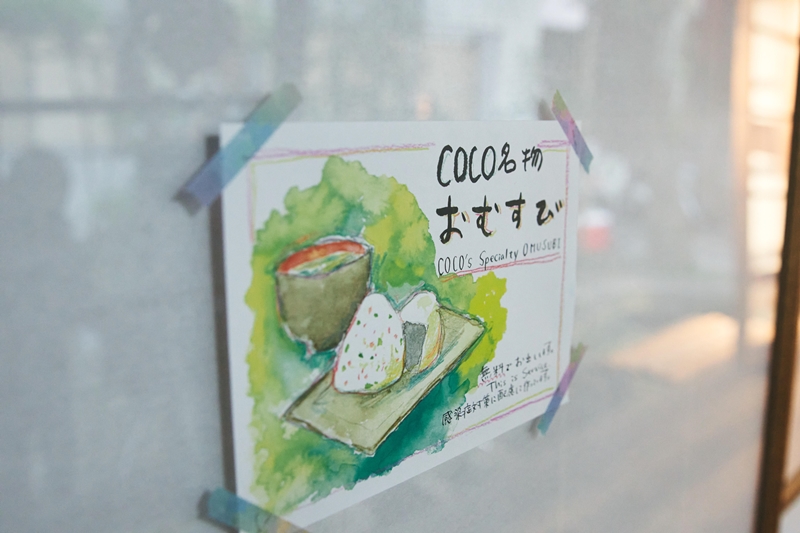 COCO名物
おむすび
COCO's Specialty OMUSUBI
無料でお出しします。
This is Service
感染症対策に配慮して作っています。